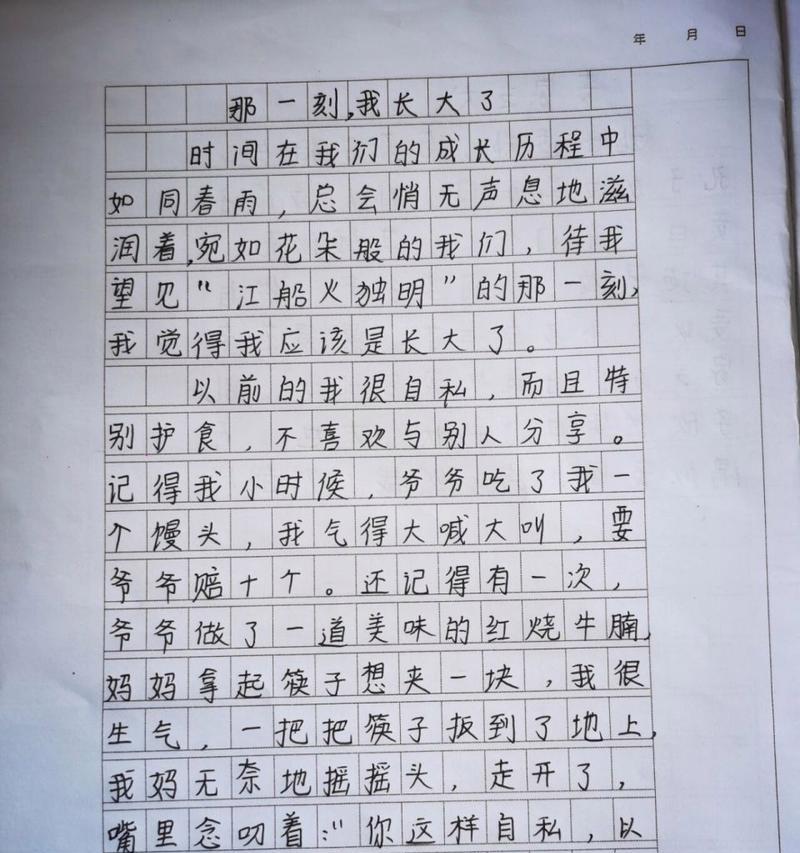 年 月 日
那一刻,我长大了
时间在我们的成长历程中
如同春雨，总会悄无声息地滋
润着,宛如花朵般的我们，待我
望见“江船火独明”的那一刻,
我觉得我应该是长大了。
以前的我很自私，而且特
别护食，不喜欢与别人分享。
记得我小时候，爷爷吃了我一
个馒头，我气得大喊大叫，要
爷爷赔十个。还记得有一次，
爷爷做了一道美味的红烧牛腩,
妈妈拿起筷子想夹一块，我很
生气，一把把筷子扳到了地上,
我妈无奈地摇摇头，走开了，
嘴里念叨着:“你这样自私，以